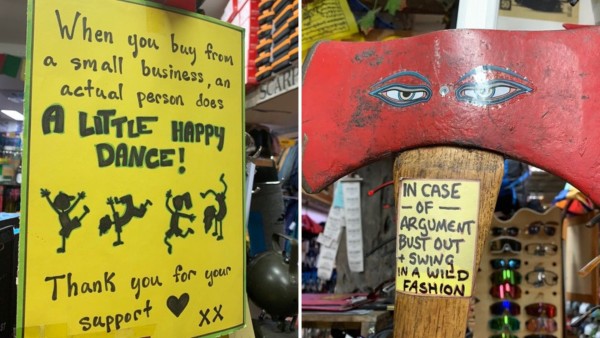 When you buy from
a small business, an
actual person does
A LITTLE HAPPY
DANCE!
Thank you for your
support ♥ xx
SCARF
IN CASE
- OF -
ARGUMENT
BUST OUT
+ SWING
IN A WILD
FASHION